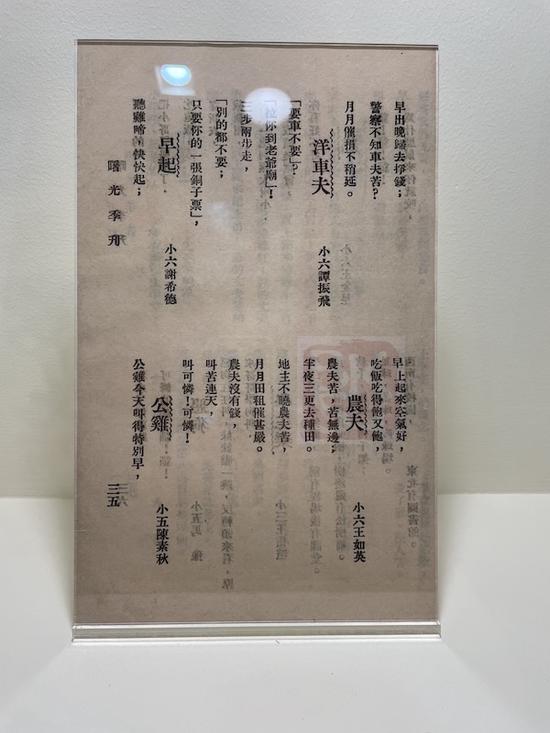 早出晚歸去掙錢；
警察不知車夫苦？
月月催捐不稍延。
洋車夫
小六譚振飛
「要車不要」？
「拉你到老爺廟」！
三步兩步走，
「別的都不要；
只要你的一張銅子票」，
早起
小六謝希德
聽雞啼的快快起；
曙光季刊
早上起來空氣好，
吃飯吃得飽又飽，
農夫
小六王如英
農夫苦，苦無邊；
半夜三更去種田。
地主不曉農夫苦，
月月田租催甚嚴。
農夫沒有錢，
叫苦連天，
叫可憐！可憐！
公雞
小五陳素秋
公雞今天叫得特別早，
三五